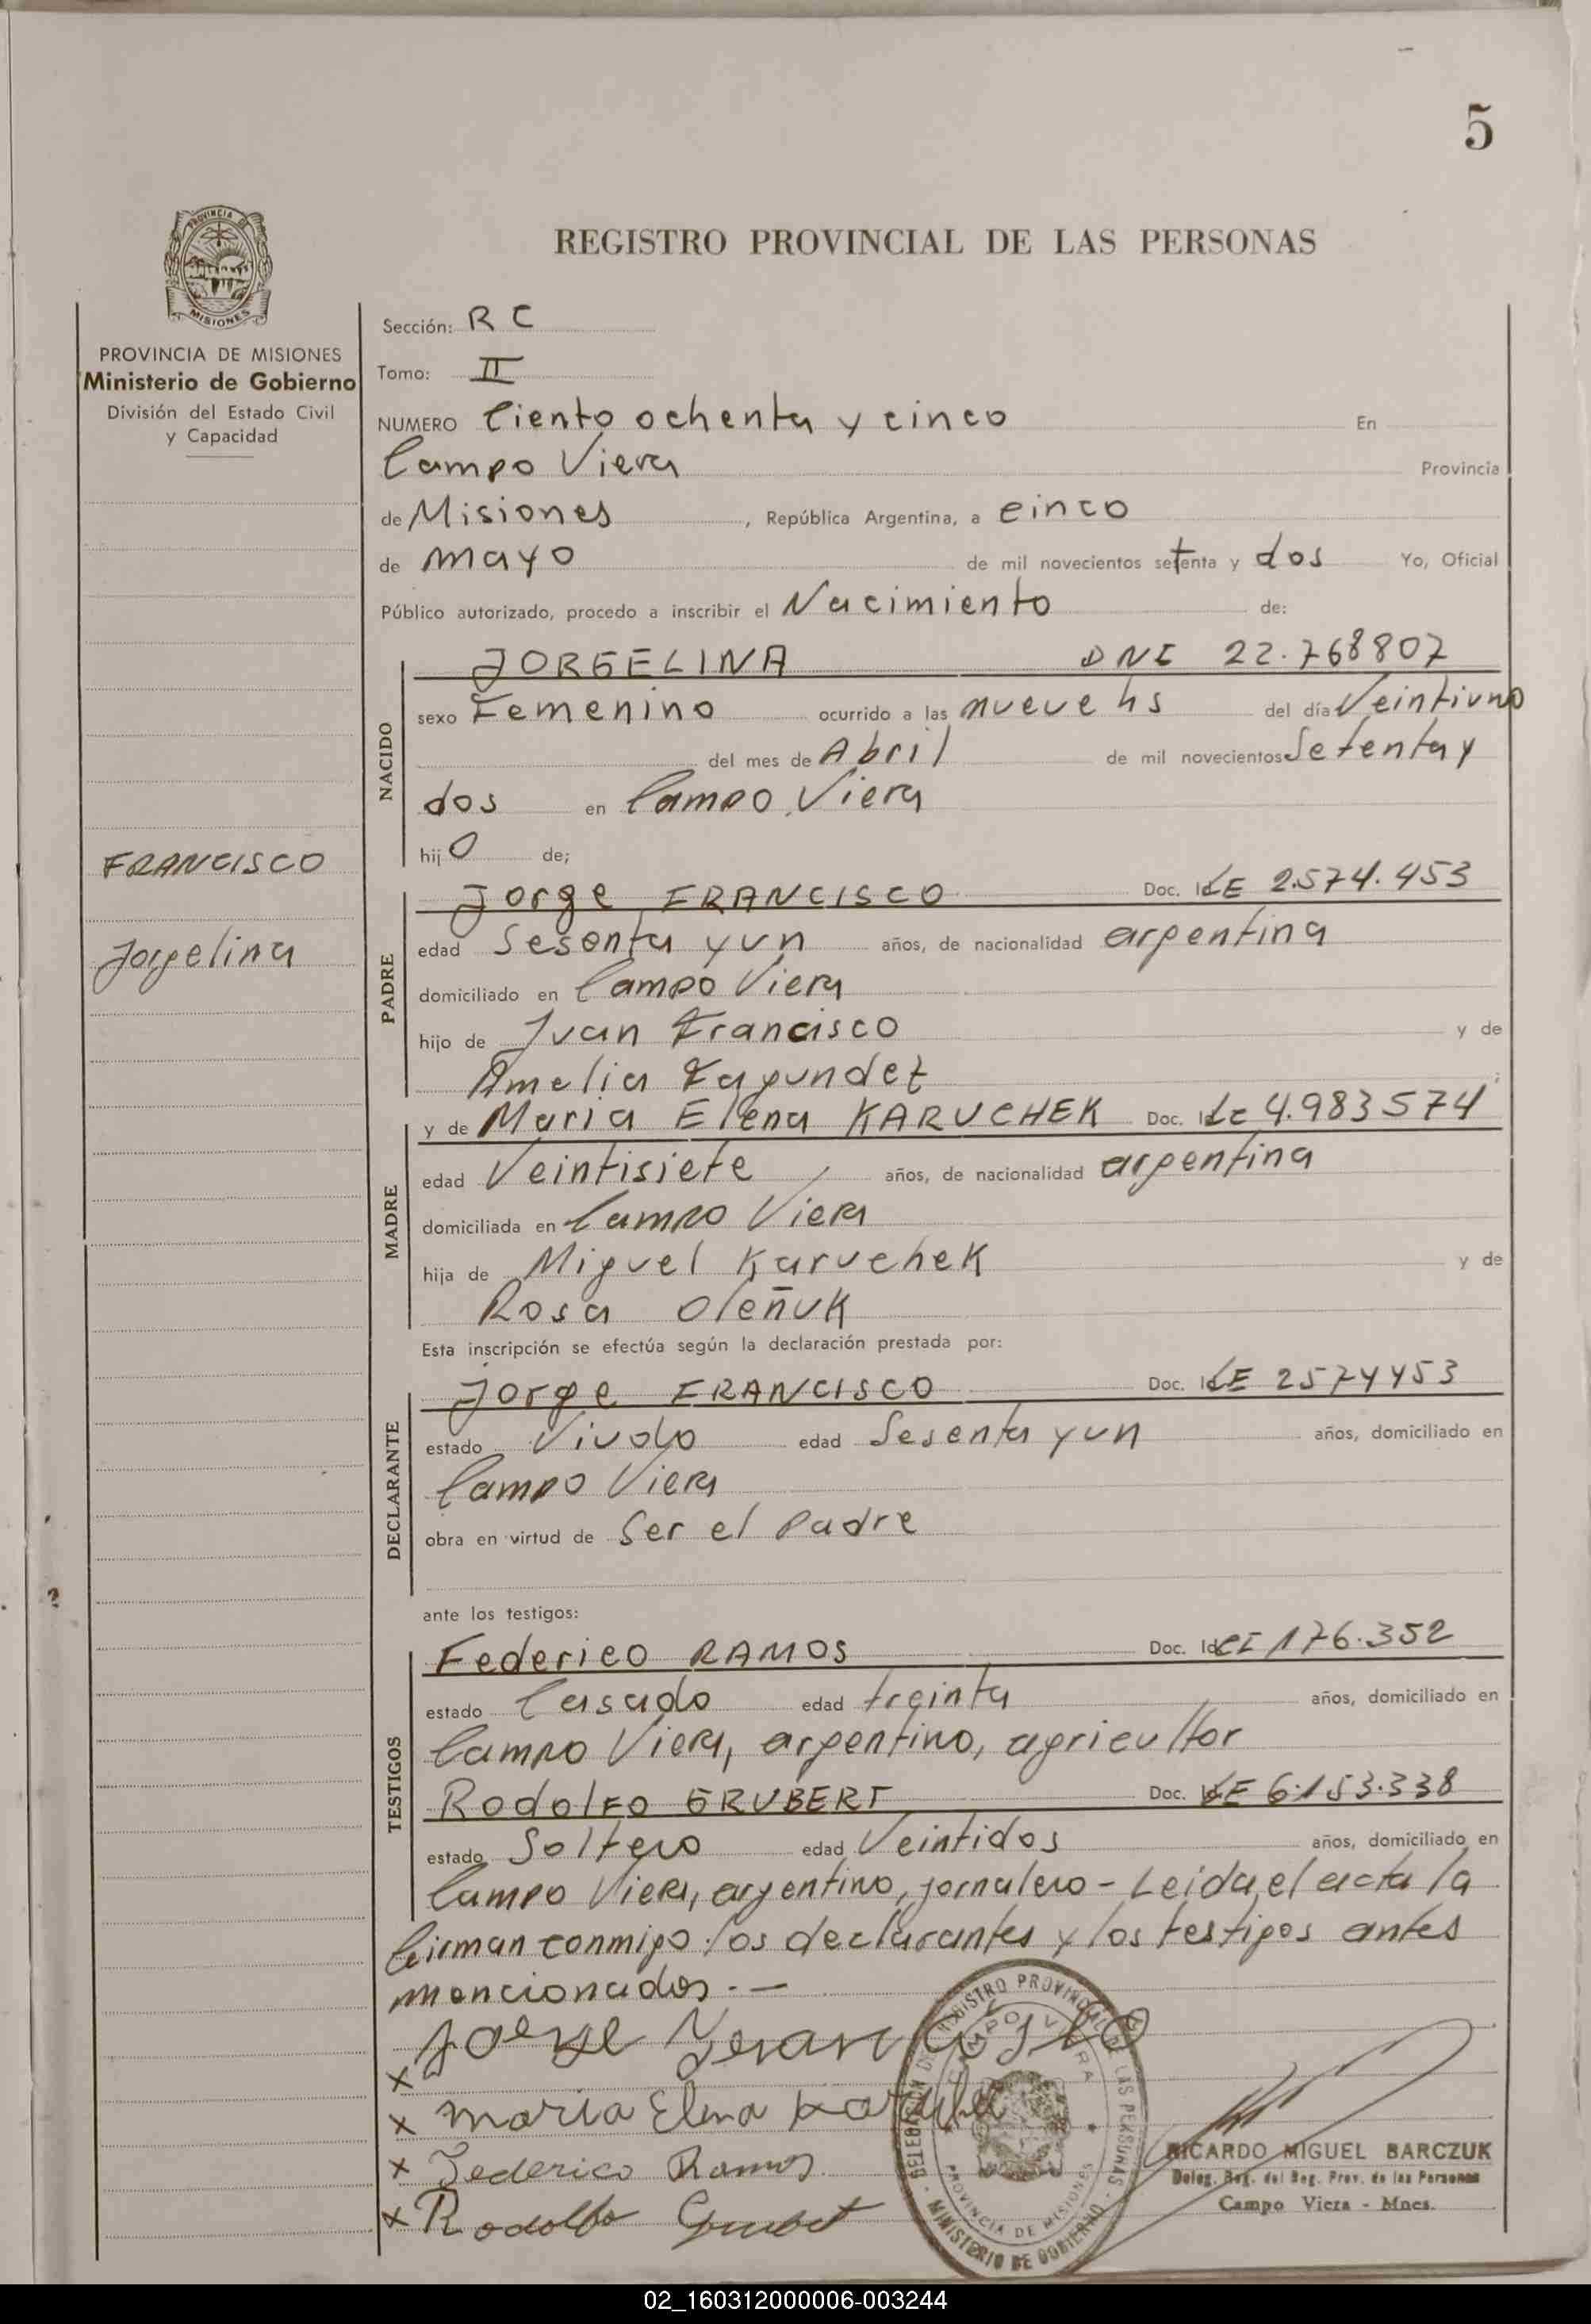 5
PROVINCIA DE
MISIONES
PROVINCIA DE MISIONES
Ministerio de Gobierno
División del Estado Civil
y Capacidad
FRANCISCO
Jorgelina
REGISTRO PROVINCIAL DE LAS PERSONAS
Sección: R C
Tomo: II
NUMERO Ciento ochenta y cinco En
Campo Viera Provincia
de Misiones, República Argentina, a cinco
de mayo de mil novecientos setenta y dos Yo, Oficial
Público autorizado, procedo a inscribir el Nacimiento de:
NACIDO
JORGELINA DNI 22.768807
sexo Femenino ocurrido a las nueve hs del día Veintiuno
del mes de Abril de mil novecientos Setenta y
dos en Campo Viera
hijo de;
PADRE
Jorge FRANCISCO Doc. Id LE 2.574.453
edad Sesenta y un años, de nacionalidad argentina
domiciliado en Campo Viera
hijo de Juan Francisco y de
Amelia Fagundez
MADRE
y de Maria Elena KARUCHEK Doc. Id LC 4.983574
edad Veintisiete años, de nacionalidad argentina
domiciliada en Campo Viera
hija de Miguel Karuchek y de
Rosa Oleñuk
Esta inscripción se efectúa según la declaración prestada por:
DECLARANTE
Jorge FRANCISCO Doc. Id LE 2574453
estado Viudo edad Sesenta y un años, domiciliado en
Campo Viera
obra en virtud de Ser el Padre
ante los testigos:
TESTIGOS
Federico RAMOS Doc. Id CI 176.352
estado Casado edad treinta años, domiciliado en
Campo Viera, argentino, agricultor
Rodolfo GRUBERT Doc. Id LE 6.153.338
estado Soltero edad Veintidos años, domiciliado en
Campo Viera, argentino, jornalero - Leida el acta la
firman conmigo los declarantes y los testigos antes
mencionados.-
x Jorge Francisco
x maria Elena
x Federico Ramos
x Rodolfo Grubert
DELEGACION DEL REGISTRO PROVINCIAL DE LAS PERSONAS
CAMPO VIERA
PROVINCIA DE MISIONES
MINISTERIO DE GOBIERNO
RICARDO MIGUEL BARCZUK
Deleg. Reg. del Reg. Prov. de las Personas
Campo Viera - Mnes.
02_160312000006-003244